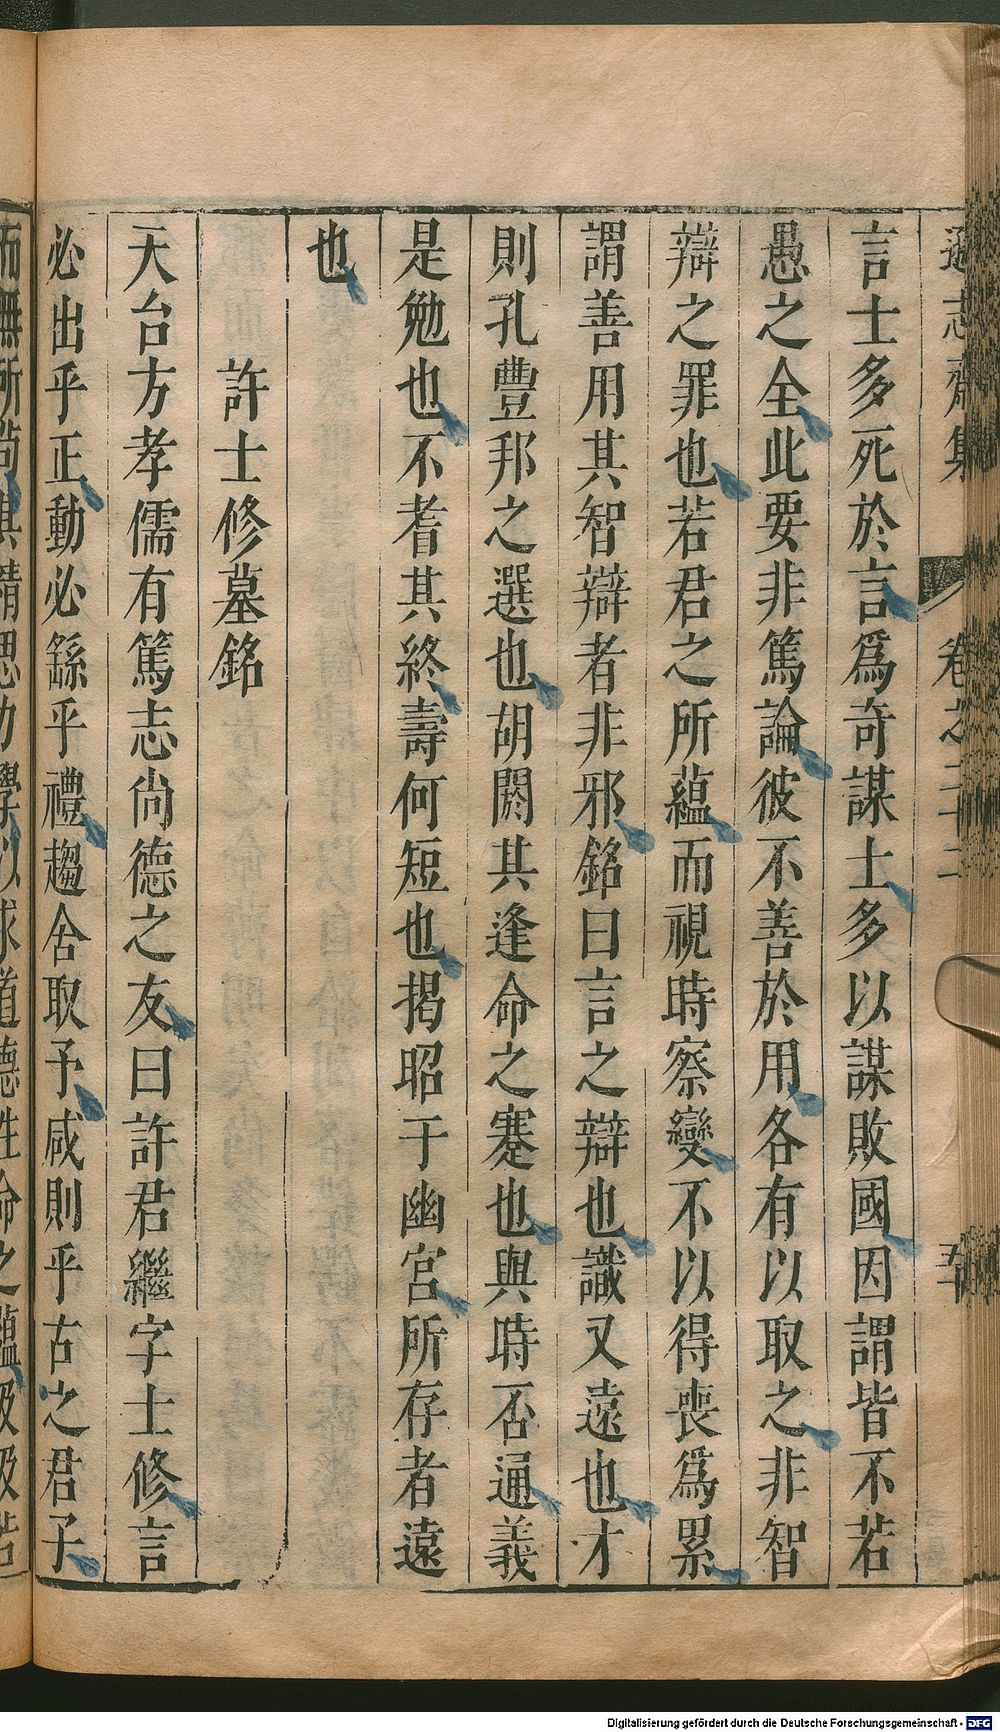 遜志齋集 卷之二十二
言士多死於言爲奇謀士多以謀敗國因謂皆不若
愚之全此要非篤論彼不善於用各有以取之非智
辯之罪也若君之所蘊而視時察變不以得喪爲累
謂善用其智辯者非邪銘曰言之辯也識又遠也才
則孔豐邦之選也胡閼其逢命之蹇也與時否通義
是勉也不耆其終壽何短也揭昭于幽宮所存者遠
也
許士修墓銘
天台方孝儒有篤志尚德之友曰許君繼字士修言
必出乎正動必繇乎禮趨舍取予咸則乎古之君子
而無所尚其精思力學以求道德性命之蘊汲汲若
Digitalisierung gefördert durch die Deutsche Forschungsgemeinschaft - DFG